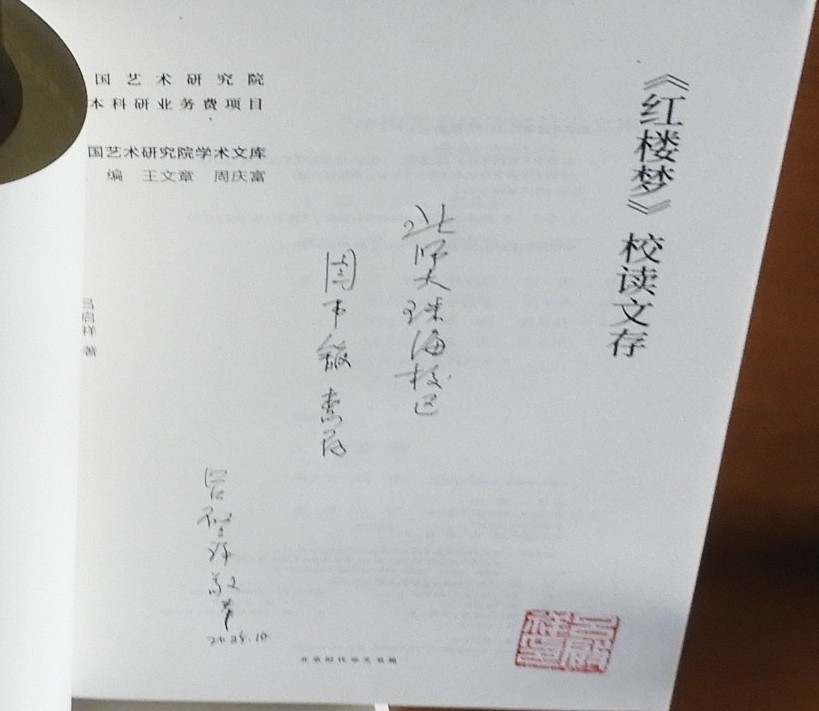 《红楼梦》校读文存
国 艺 术 研 究 院
本科研业务费项目
国艺术研究院学术文库
编 王文章 周庆富
吕启祥 著
北师大珠海校区
惠存
吕启祥敬赠
北京时代华文书局